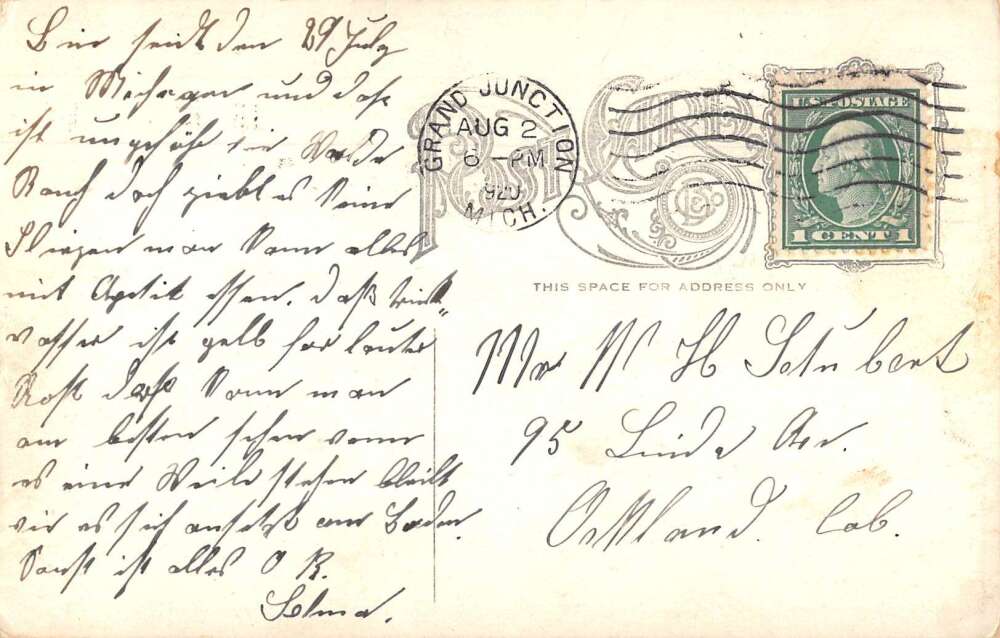 Bin seit den 29 July
in Michegan und das
ist ungefähr in Walde
Rauch doch giebt es keine
Fliegen man kann alles
mit Apetit essen. Daß Trink-
wasser ist gelb for lauter
Rost das kann man
am besten sehen wenn
es eine Weile stehen bleibt
wie es sich ansetzt am Boden.
Sonst ist alles O K.
Selma.
GRAND JUNCTION
AUG 2
6 - PM
1920
MICH.
POST CARD
U.S. POSTAGE
1 CENT 1
THIS SPACE FOR ADDRESS ONLY
Mr W H Schubert
95 Linda Av.
Oakland. Cal.